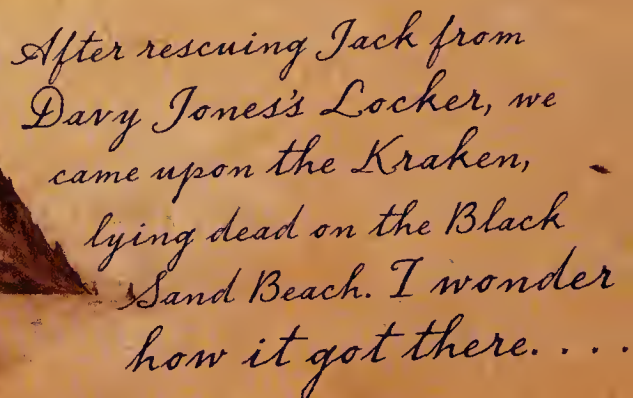 After rescuing Jack from
Davy Jones's Locker, we
came upon the Kraken,
lying dead on the Black
Sand Beach. I wonder
how it got there. . . .